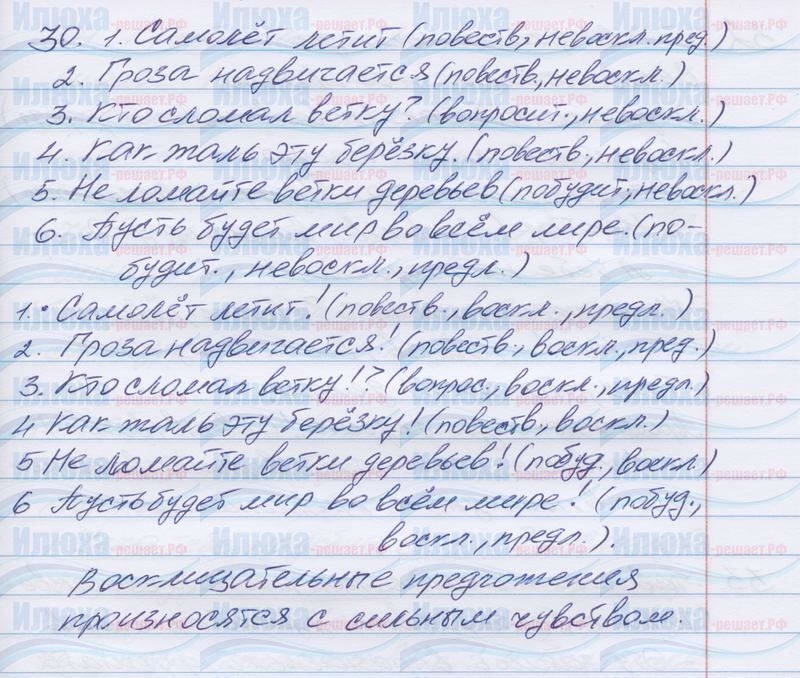 30. 1. Самолёт летит (повеств., невоскл. пред.)
2. Гроза надвигается (повеств., невоскл.)
3. Кто сломал ветку? (вопросит., невоскл.)
4. Как жаль эту берёзку. (повеств., невоскл.)
5. Не ломайте ветки деревьев (побудит., невоскл.)
6. Пусть будет мир во всём мире. (по-
будит., невоскл., предл.)
1. Самолёт летит! (повеств., воскл., предл.)
2. Гроза надвигается! (повеств., воскл., пред.)
3. Кто сломал ветку!? (вопрос., воскл., предл.)
4 Как жаль эту берёзку! (повеств., воскл.)
5 Не ломайте ветки деревьев! (побуд., воскл.)
6 Пусть будет мир во всём мире! (побуд.,
воскл., предл.).
Восклицательные предложения
произносятся с сильным чувством.
Илюха-решает.РФ